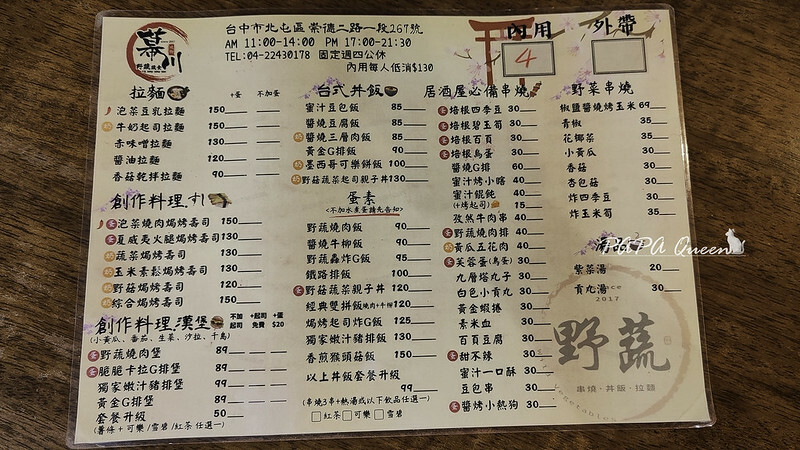 幕川
野蔬蔬食
台中市北屯區崇德二路一段267號
AM 11:00-14:00 PM 17:00-21:30
TEL:04-22430178 固定週四公休
內用每人低消$130
內用 外帶
4
拉麵 +蛋 不加蛋
泡菜豆乳拉麵 150
奶 牛奶起司拉麵 150
赤味噌拉麵 130
醬油拉麵 120
香菇乾拌拉麵 90
創作料理.すし
蛋 泡菜燒肉焗烤壽司 150
蛋 夏威夷火腿焗烤壽司 130
奶 蔬菜焗烤壽司 130
奶 玉米素鬆焗烤壽司 130
奶 野菇焗烤壽司 120
奶 綜合焗烤壽司 150
創作料理漢堡 不加起司 +起司免費 +蛋$20
(小黃瓜、番茄、生菜、沙拉、千島)
蛋 野蔬燒肉堡 89
蛋 脆脆卡拉G排堡 89
獨家嫩汁豬排堡 99
黃金G排堡 89
套餐升級 50
(薯條 + 可樂/雪碧/紅茶 任選一)
台式丼飯
蜜汁豆包飯 85
醬燒豆腐飯 85
奶 醬燒三層肉飯 85
黃金G排飯 90
奶 墨西哥可樂餅飯 100
奶 野菇蔬菜起司親子丼 130
蛋素
<不加水煮蛋請先告知>
野蔬燒肉飯 90
醬燒牛柳飯 90
野蔬轟炸G飯 95
鐵路排飯 100
蛋 野菇蔬菜親子丼 120
經典雙拼飯(燒肉+牛柳) 120
焗烤起司炸G飯 125
獨家嫩汁豬排飯 130
香煎猴頭菇飯 150
以上丼飯套餐升級 99
(串燒3串+熱湯或以下飲品任選一)
□紅茶 □可樂 □雪碧
居酒屋必備串燒
蛋 培根四季豆 30
蛋 培根碧玉筍 30
蛋 培根百頁 30
蛋 培根鳥蛋 30
醬燒G排 60
蜜汁烤小嗐 40
蜜汁餛飩 40
(+烤起司) 15
孜然牛肉串 40
蛋 野蔬燒肉排 40
奶 黃瓜五花肉 40
蛋 芙蓉蛋(鳥蛋) 30
九層塔丸子 30
白色小貢丸 30
黃金蝦捲 30
素米血 30
百頁豆腐 30
蛋 甜不辣 30
蜜汁一口酥 30
豆包串 30
蛋 醬烤小熱狗 30
野菜串燒
椒鹽醬燒烤玉米 69
青椒 35
花椰菜 35
小黃瓜 30
香菇 30
杏包菇 30
炸四季豆 30
炸玉米筍 35
紫菜湯 20
貢丸湯 30
PAPA Queen
Since
2017
野蔬
串燒·丼飯·拉麵